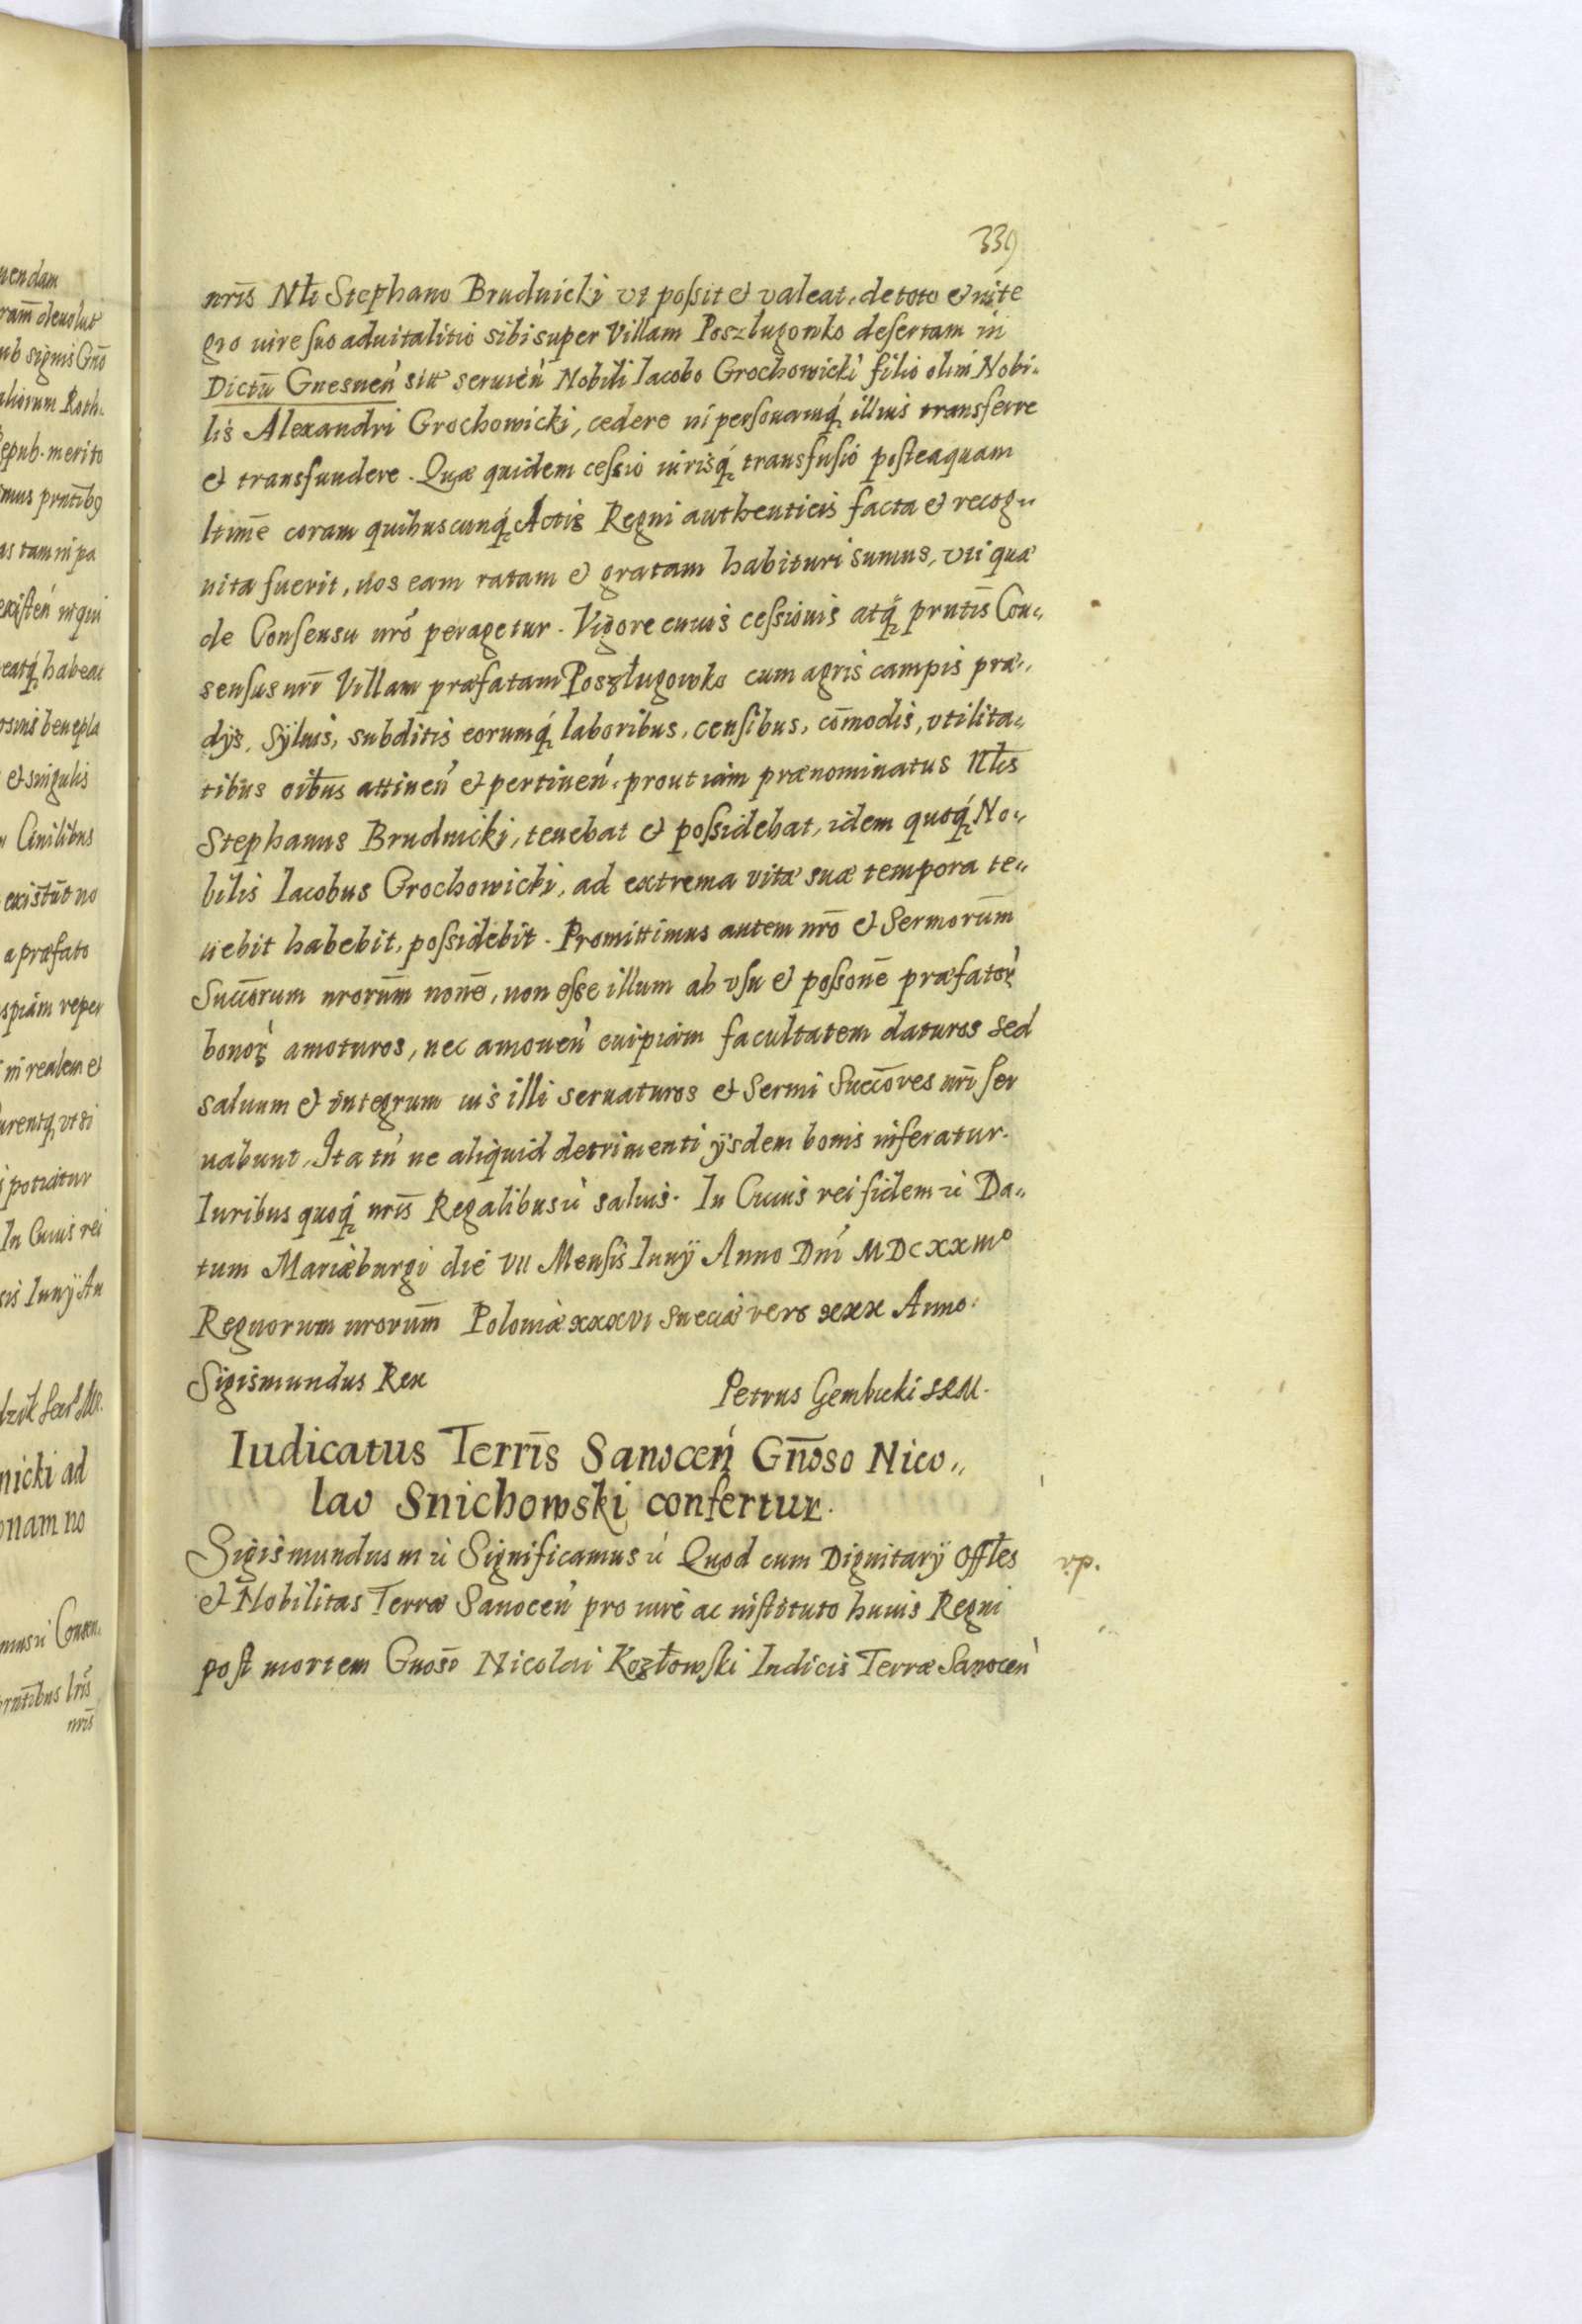 339
nris̄ Nłi Stephano Brudnicki vt poſsit et valeat, de toto et inte
gro iure ſuo aduitalitio sibi super Villam Poszługowko deſertam in
Dictū Gnesneń sitt seruień Nobili Iacobo Grochowicki filio olim Nobi„
lis Alexandri Grochowicki, cedere in perſonamq́ illius transferre
et transfundere. Quæ quidem ceſsio iurisq́ transfuſio poſteaquam
ltim̄e coram quibuscunq́ Actis Regni authenticis facta et recog„
nita fuerit, nos eam ratam et gratam habituri sumus, vti quæ
de Conſenſu nrō peragetur. Vigore cuius ceſsionis atq́ prntis̄ Con„
senſus nrī Villam præfatam Poszługowko cum agris campis præ„
dÿs, Sÿluis, subditis eorumq́ laboribus, cenſibus, com̄odis, vtilita„
tibus oib̄us attineń et pertineń, prout iam prænominatus Nłis
Stephanus Brudnicki, tenebat et poſsidebat, idem quoq́ No„
bilis Iacobus Grochowicki, ad extrema vitæ suæ tempora te„
nebit habebit, poſsidebit. Promittimus autem nrō et Sermorum̄
Succ̄orum nrorum̄ nonē, non eſse illum ab vſu et poſsonē præfator̀
bonor̀ amoturos, nec amoueń cuipiam facultatem daturos sed
saluum et integrum ius illi seruaturos et Sermi Succ̄ores nrī ſer
uabunt, Ita tń ne aliquid detrimenti ÿsdem bonis inferatur.
Iuribus quoq́ nris̄ Regalibus ú saluis. In Cuius rei fidem ú Da„
tum Mariæburgi die VII Menſis Iunÿ Anno Dnī MDCXXIIIº
Regnorum nrorum̄ Poloniæ XXXVI Sueciæ vero XXX Anno.
Sigismundus Rex Petrus Gembicki SRM.
Iudicatus Terris̄ Sanoceń Gn̄oso Nico„
lao Snichowski confertur.
Sigismundus III ú Significamus ú Quod cum Dignitarÿ Offłes
vp.
et Nobilitas Terræ Sanoceń pro iure ac inſtituto huius Regni
poſt mortem Gnosī Nicolai Kozłowſki Iudicis Terræ Sanoceń